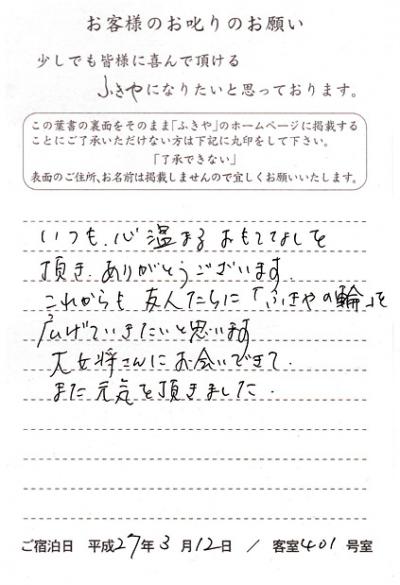 お客様のお叱りのお願い
少しでも皆様に喜んで頂ける
ふきやになりたいと思っております。
この葉書の裏面をそのまま「ふきや」のホームページに掲載する
ことにご了承いただけない方は下記に丸印をして下さい。
「了承できない」
表面のご住所、お名前は掲載しませんので宜しくお願いいたします。
いつも、心温まるおもてなしを
頂き、ありがとうございます。
これからも友人たちに「ふきやの輪」を
広げていきたいと思います
大女将さんにお会いできて、
また元気を頂きました。
ご宿泊日 平成27年3月12日 / 客室401号室